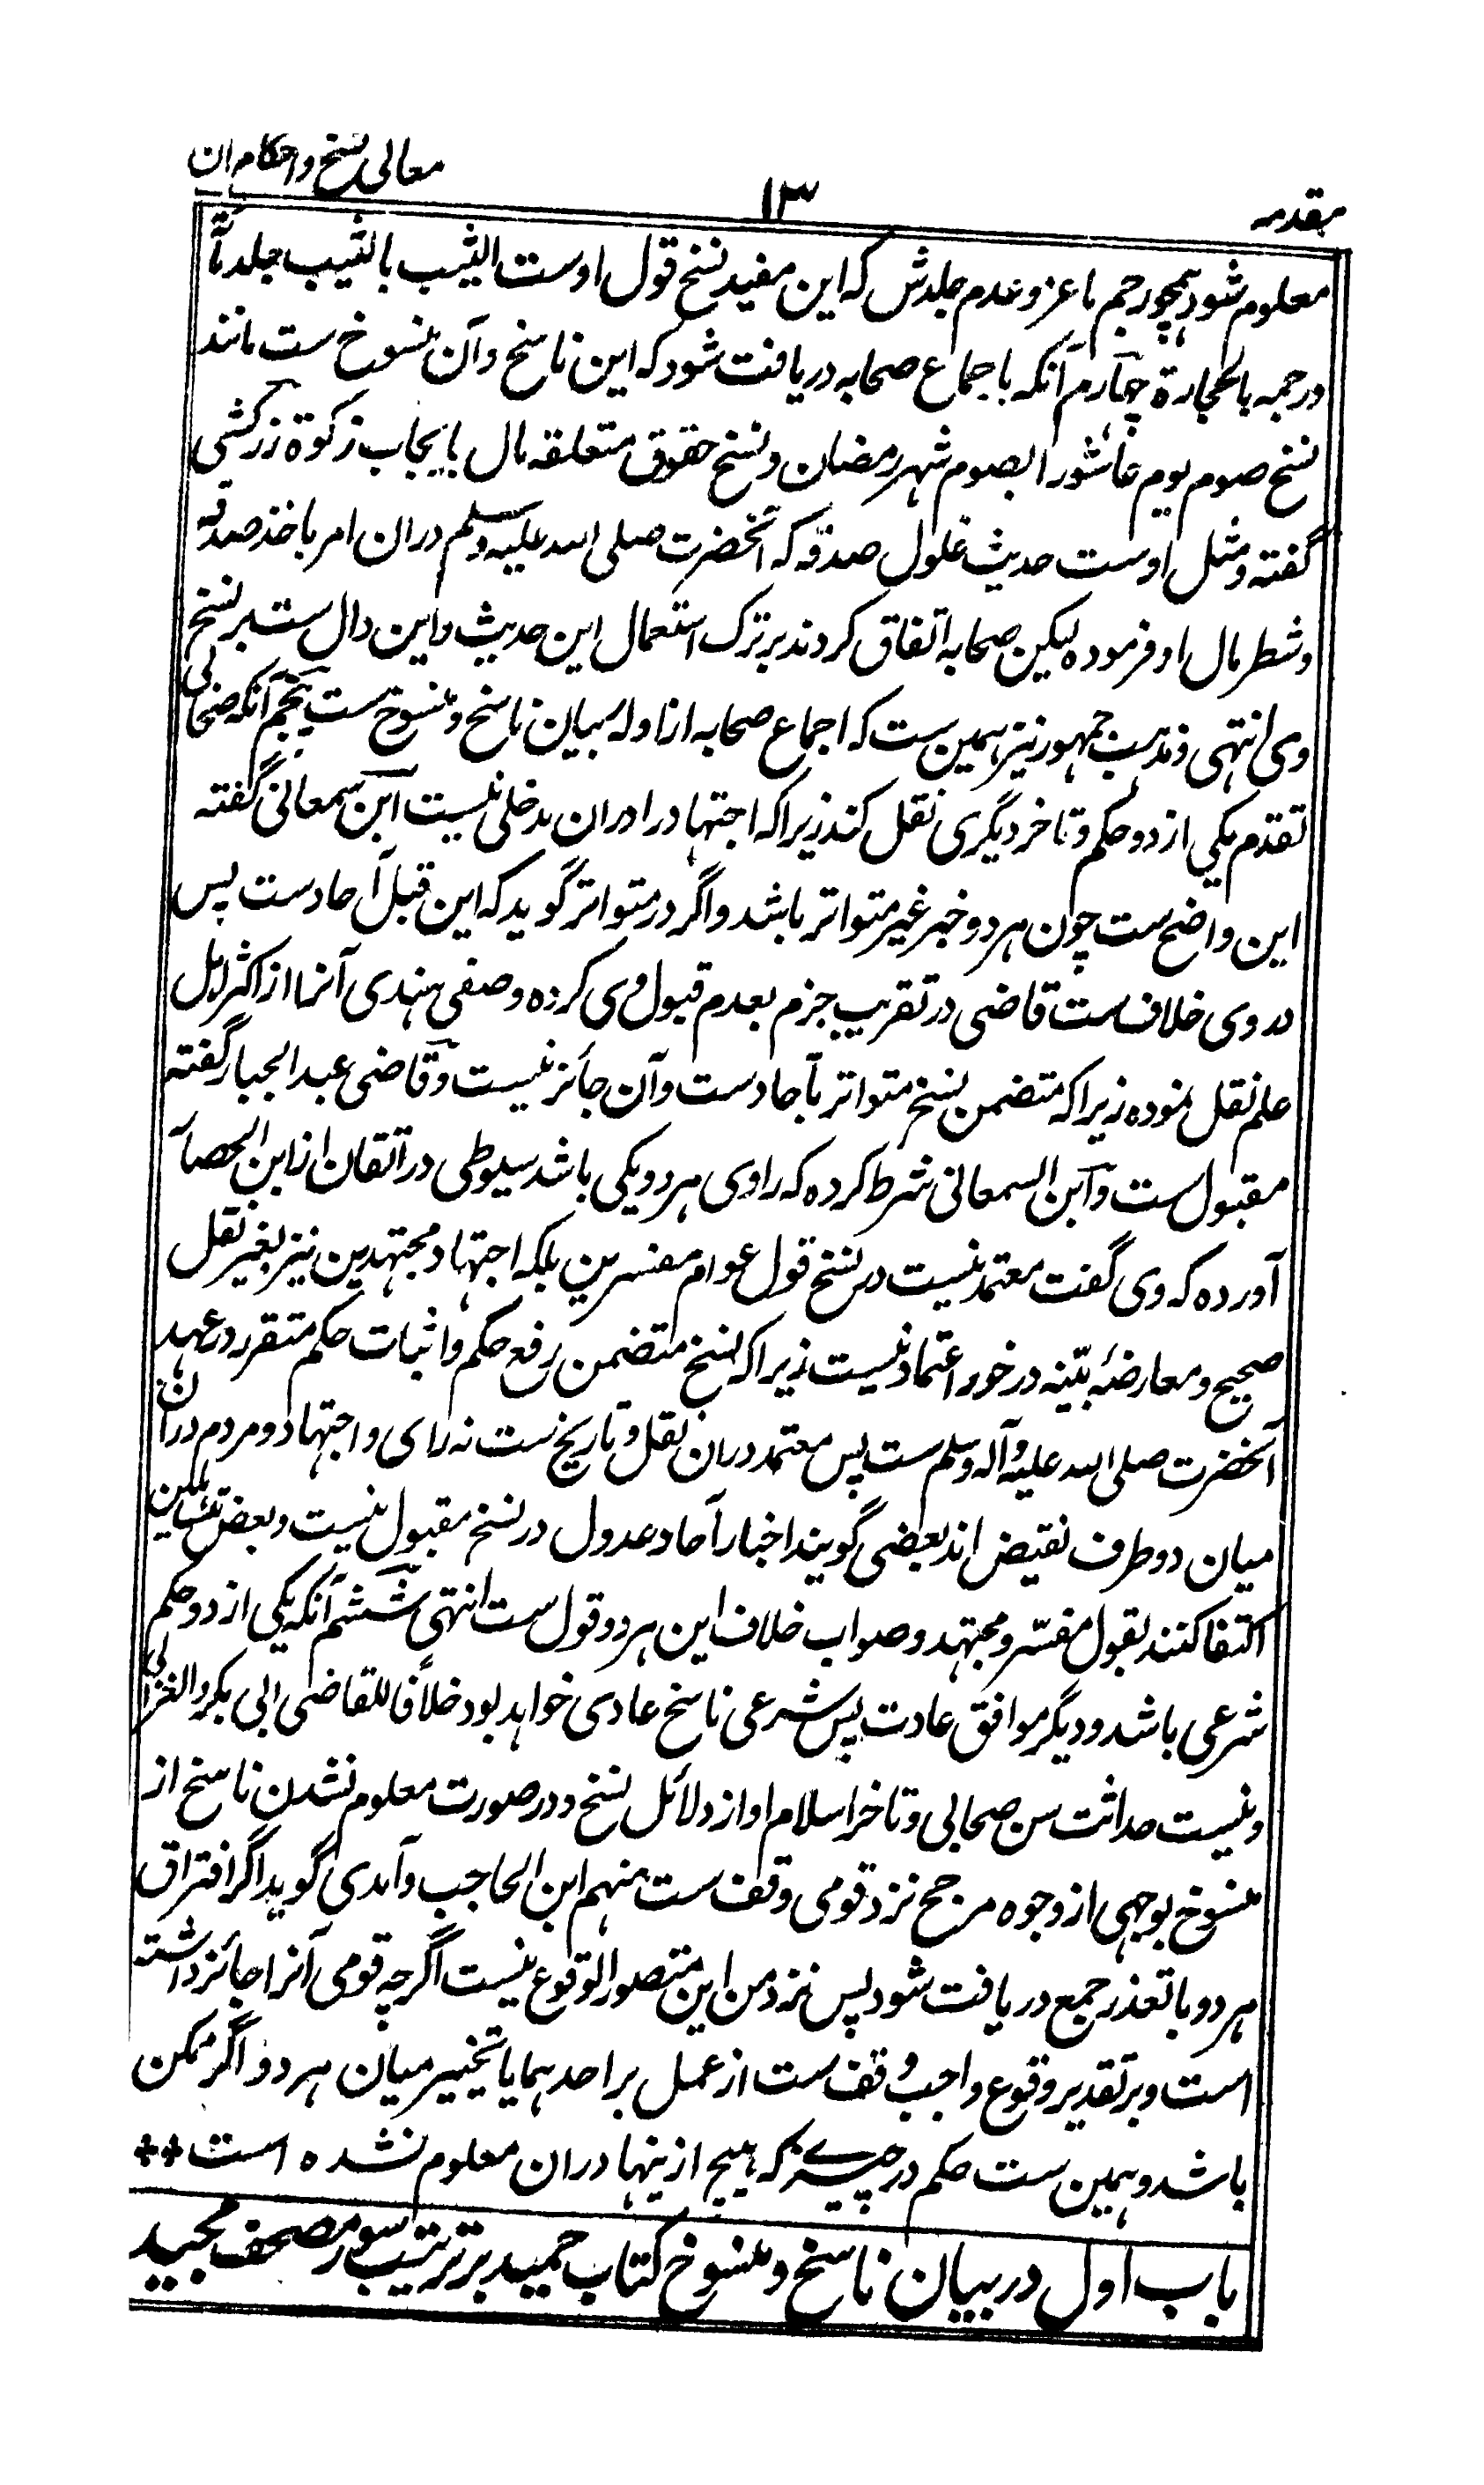 مقدمہ ۱۳ معالی نسخ واحکام ان
معلوم شود ہمچو رجم ماعز و عدم جلدش کہ این مفید نسخ قول اوست الثیب بالثیب جلد مأتہ
ورجمہ بالحجارۃ چہارم آنکہ باجماع صحابہ دریافت شود کہ این ناسخ وآن منسوخ ست مانند
نسخ صوم یوم عاشورا بصوم شہر رمضان ونسخ حقوق متعلقہ مال بایجاب زکوۃ زرکشی
گفتہ ومثل اوست حدیث غلول صدقہ کہ آنحضرت صلی اللہ علیہ وسلم دران امر باخذ صدقہ
وشطر مال او فرمودہ لیکن صحابہ اتفاق کردند بر ترک استعمال این حدیث واین دال ست بر نسخ
وی انتہی ومذہب جمہور نیز ہمین ست کہ اجماع صحابہ از ادلہ بیان ناسخ ومنسوخ ست پنجم آنکہ صحابی
تقدم یکی از دو حکم وتاخر دیگری نقل کند زیراکہ اجتہاد را دران مدخلی نیست ابن سمعانی گفتہ
این واضح ست چون ہر دو خبر غیر متواتر باشد واگر در متواتر گوید کہ این قبل آحاد ست پس
دروی خلاف ست قاضی در تقریب جزم بعدم قبول وی کردہ وصفی ہندی آنرا از اکثر اہل
علم نقل نمودہ زیراکہ متضمن نسخ متواتر بآحاد ست وآن جائز نیست وقاضی عبد الجبار گفتہ
مقبول ست وابن السمعانی شرط کردہ کہ راوی ہر دو یکی باشد سیوطی در اتقان از ابن الحصار
آوردہ کہ وی گفت معتمد نیست در نسخ قول عوام مفسرین بلکہ اجتہاد مجتہدین نیز بغیر نقل
صحیح ومعارضۂ بیّنہ درخور اعتماد نیست زیراکہ نسخ متضمن رفع حکم واثبات حکم متقرر در عہد
آنحضرت صلی اللہ علیہ وآلہ وسلم ست پس معتمد دران نقل وتاریخ ست نہ رای واجتہاد ومردم دران
میان دو طرف نقیض اند بعضی گویند اخبار آحاد عدول در نسخ مقبول نیست وبعض متساہلین
اکتفا کنند بقول مفسّر ومجتہد وصواب خلاف این ہر دو قول ست انتہی ششم آنکہ یکی از دو حکم
شرعی باشد ودیگر موافق عادت پس شرعی ناسخ عادی خواہد بود خلافًا للقاضی ابی بکر والغزالی
ونیست حداثت سن صحابی وتاخر اسلام او از دلائل نسخ ودر صورت معلوم نشدن ناسخ از
منسوخ بوجہی از وجوہ مرجح نزد قومی وقف ست منہم ابن الحاجب وآمدی گوید اگر افتراق
ہر دو با تعذر جمع دریافت شود پس نزد من این متصور الوقوع نیست اگرچہ قومی آنرا جائز داشتہ
است وبر تقدیر وقوع واجب وقف ست از عمل بر احدہما یا تخییر میان ہر دو اگر ممکن
باشد وہمین ست حکم در چیزے کہ ہیچ ازینہا دران معلوم نشدہ است **
باب اول در بیان ناسخ ومنسوخ کتاب حمید بر ترتیب سور مصحف مجید